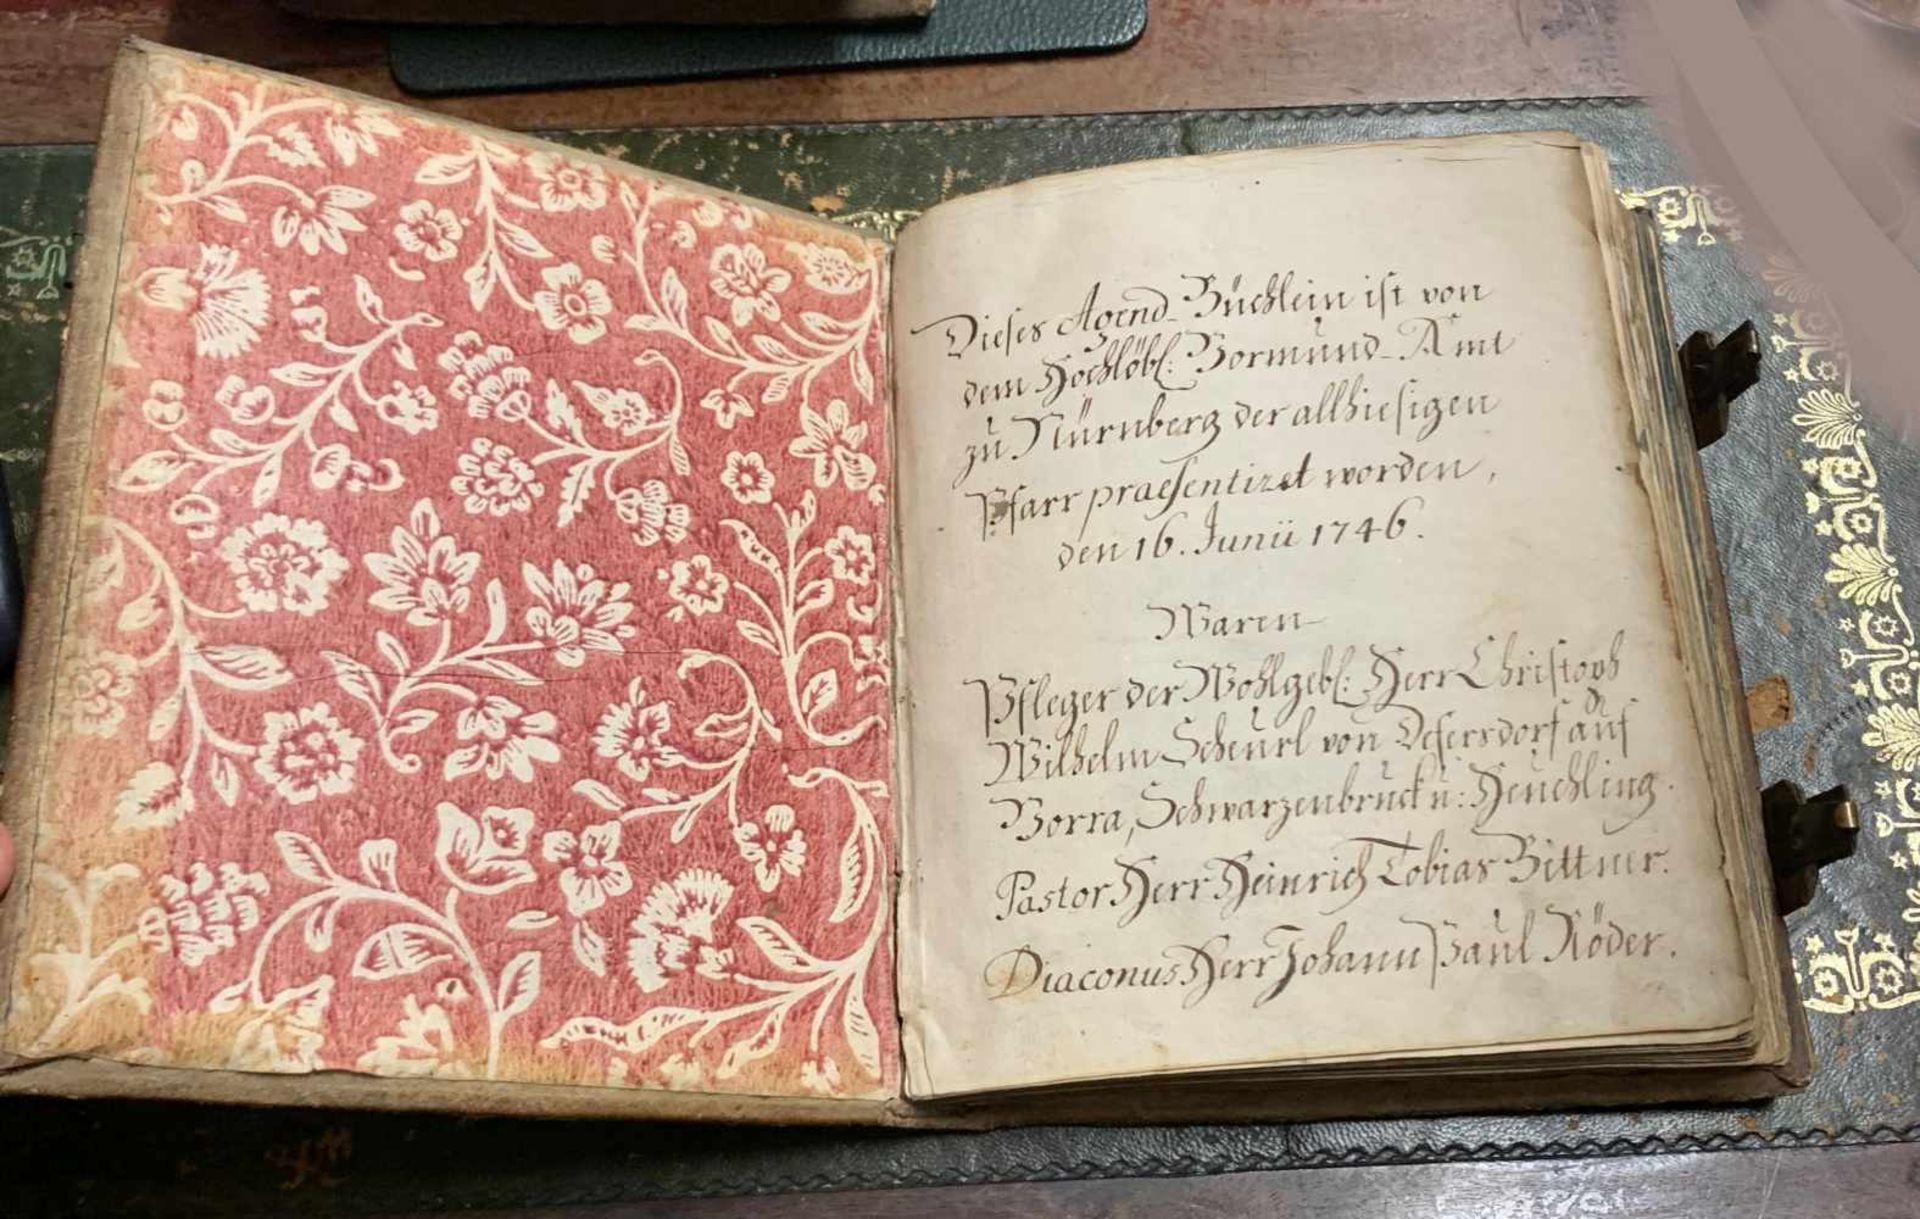 Dieses Agend-Büchlein ist von
dem Hochlöbl: Vormund-Amt
zu Nürnberg der allhiesigen
Pfarr praesentiret worden,
den 16. Junii 1746.
Waren
Pfleger der Wohlgebl: Herr Christoph
Wilhelm Scheurl von Defersdorf auf
Vorra, Schwarzenbruck u: Heuchling.
Pastor Herr Heinrich Tobias Bittner.
Diaconus Herr Johann Paul Röder.